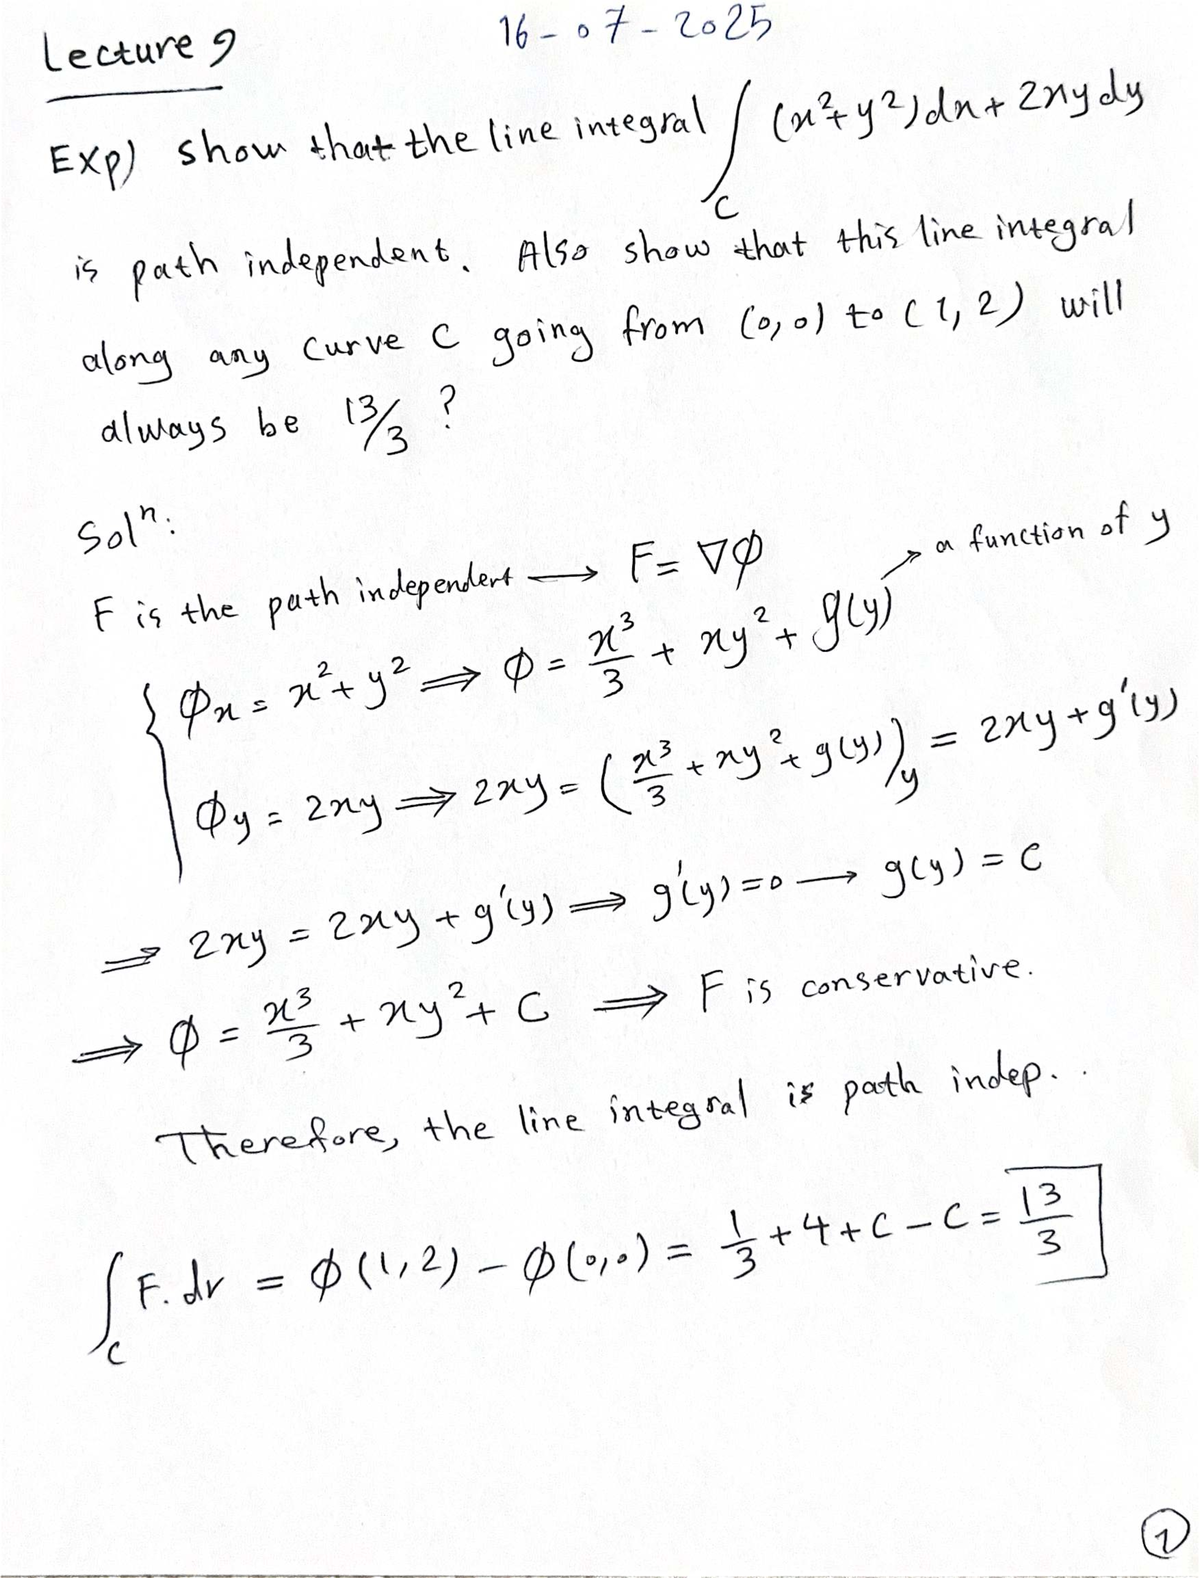 Lecture 9
16-07-2025
Exp) show that the line integral ∫_C (x²+y²)dx + 2xy dy
is path independent. Also show that this line integral
along any curve C going from (0,0) to (1,2) will
always be 13/3 ?
Solⁿ:
F is the path independent ⟶ F = ∇ϕ
{ ϕx = x²+y² ⟹ ϕ = x³/3 + xy² + g(y) → a function of y
ϕy = 2xy ⟹ 2xy = (x³/3 + xy² + g(y))_y = 2xy + g'(y)
⟹ 2xy = 2xy + g'(y) ⟹ g'(y) = 0 ⟶ g(y) = C
⟹ ϕ = x³/3 + xy² + C ⟹ F is conservative.
Therefore, the line integral is path indep..
∫_C F.dr = ϕ(1,2) - ϕ(0,0) = 1/3 + 4 + C - C = 13/3
1